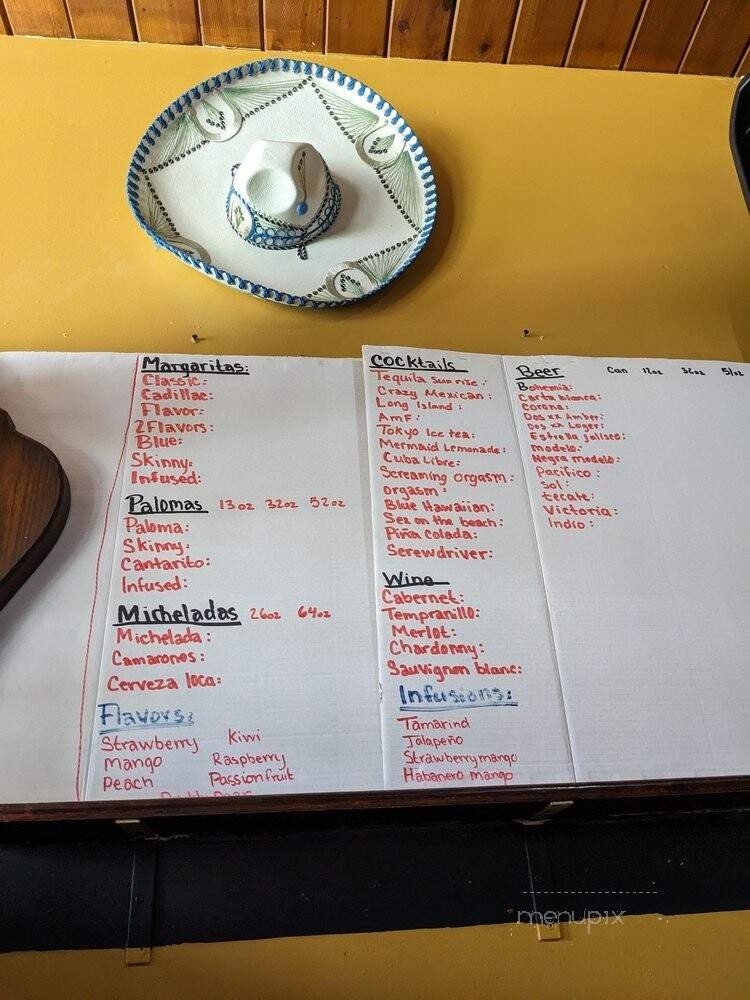 Margaritas:
Classic:
Cadillac:
Flavor:
2Flavors:
Blue:
Skinny:
Infused:
Palomas 13oz 32oz 52oz
Paloma:
Skinny:
Cantarito:
Infused:
Micheladas 26oz 64oz
Michelada:
Camarones:
Cerveza loca:
Flavors:
Strawberry Kiwi
Mango Raspberry
Peach Passionfruit
Cocktails
Tequila Sunrise:
Crazy Mexican:
Long Island:
AMF:
Tokyo Ice tea:
Mermaid Lemonade:
Cuba Libre:
Screaming Orgasm:
Orgasm:
Blue Hawaiian:
Sex on the beach:
Piña Colada:
Screwdriver:
Wine
Cabernet:
Tempranillo:
Merlot:
Chardonny:
Sauvignon blanc:
Infusions:
Tamarind
Jalapeño
Strawberry mango
Habanero mango
Beer Can 12oz 32oz 51oz
Bohemia:
Carta blanca:
Corona:
Dos xx Amber:
Dos xx Lager:
Estrella jalisco:
modelo:
Negra modelo:
Pacifico:
Sol:
tecate:
Victoria:
Indio:
menupix